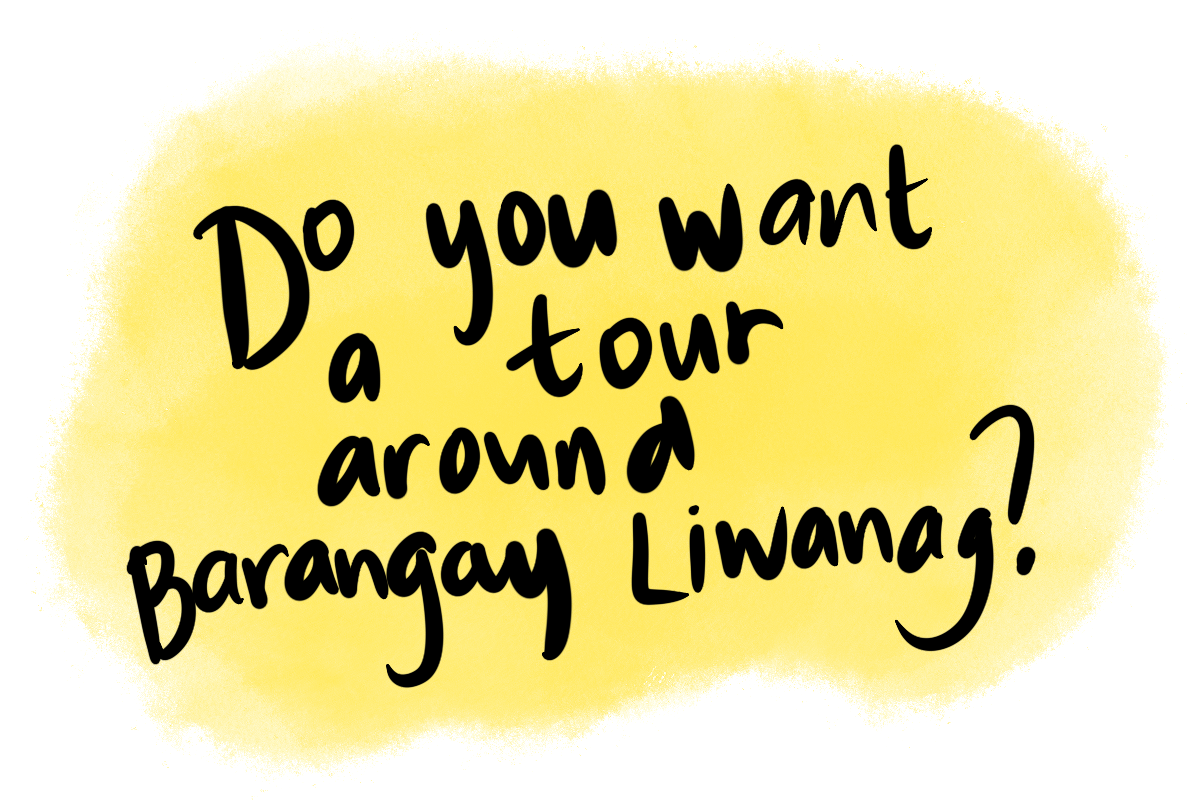 Do you want
a tour
around
Barangay Liwanag?